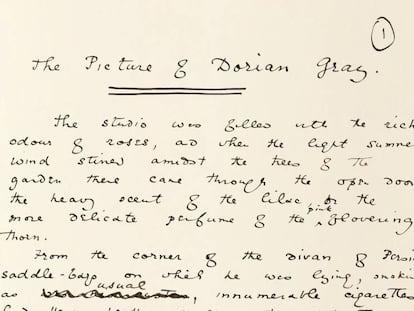 1
The Picture of Dorian Gray.
The studio was filled with the rich
odour of roses, and when the light summer
wind stirred amidst the trees of the
garden there came through the open door
the heavy scent of the lilac, or the
more delicate perfume of the pink flowering
thorn.
From the corner of the divan of Persia
saddle-bags on which he was lying, smoki
as usual, innumerable cigarettes